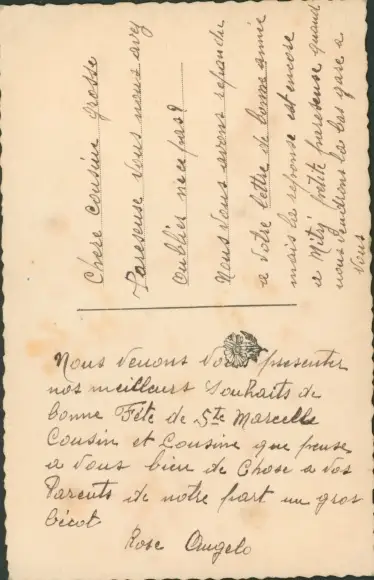 Chere cousine grosse
Pareseuse vous nous avez
oublier ne ce pas?
Nous vous avons repondu
a votre lettre de bonne année
mais la reponse est encore
a Mitry petite pareseuse quand
nous viendrons la bas gare a
vous
Nous venons vous presenter
nos meilleurs souhaits de
bonne Fête de Ste Marcelle
Cousin et Cousine que pense
a vous bien de chose a vos
Parents de notre part un gros
bécot
Rose Angelo